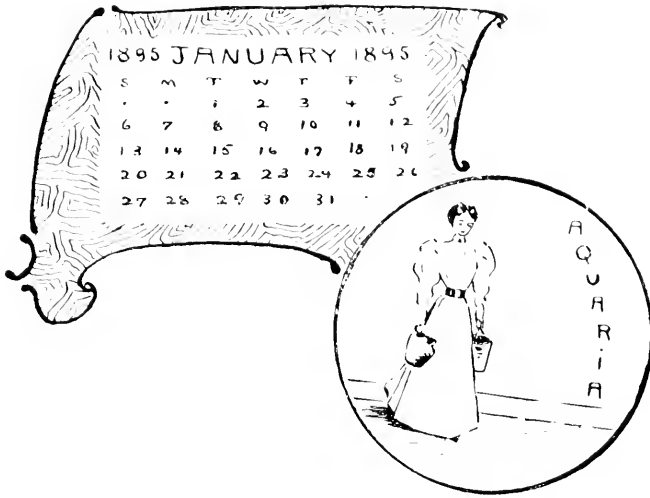 1895 JANUARY 1895
S M T W T F S
. . 1 2 3 4 5
6 7 8 9 10 11 12
13 14 15 16 17 18 19
20 21 22 23 24 25 26
27 28 29 30 31 .
AQUARiA